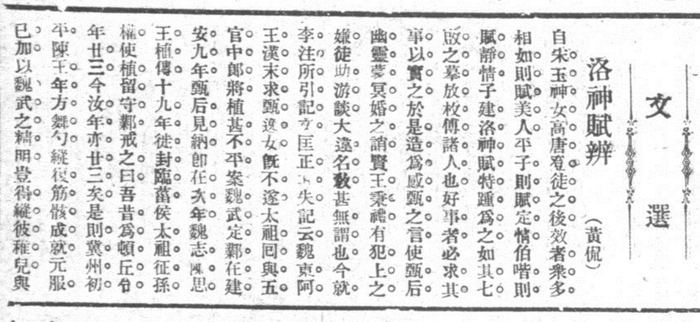 文選
洛神賦辨
(黃侃)
自朱玉神女高唐登徒之後效者衆多
相如則賦美人平子則賦定情伯喈則
賦靜情子建洛神賦特踵爲之如其七
啟之摹放枚傅諸人也好事者必求其
事以實之於是造爲感甄之言使甄后
幽靈蒙冥婚之誚賢王秉禮有犯上之
嫌徒助游談大違名敎甚無謂也今就
李注所引記文匡正其失記云魏東阿
王漢末求甄逸女旣不遂太祖回與五
官中郎將植甚不平案魏武定鄴在建
安九年甄后見納卽在次年魏志陳思
王植傳十九年徙封臨菑侯太祖征孫
權使植留守鄴戒之曰吾昔爲頓丘令
年廿三今汝年亦廿三矣是則冀州初
平陳王年方舞勺縱復筋骸成就元服
已加以魏武之精明豈得縱彼稚兒與